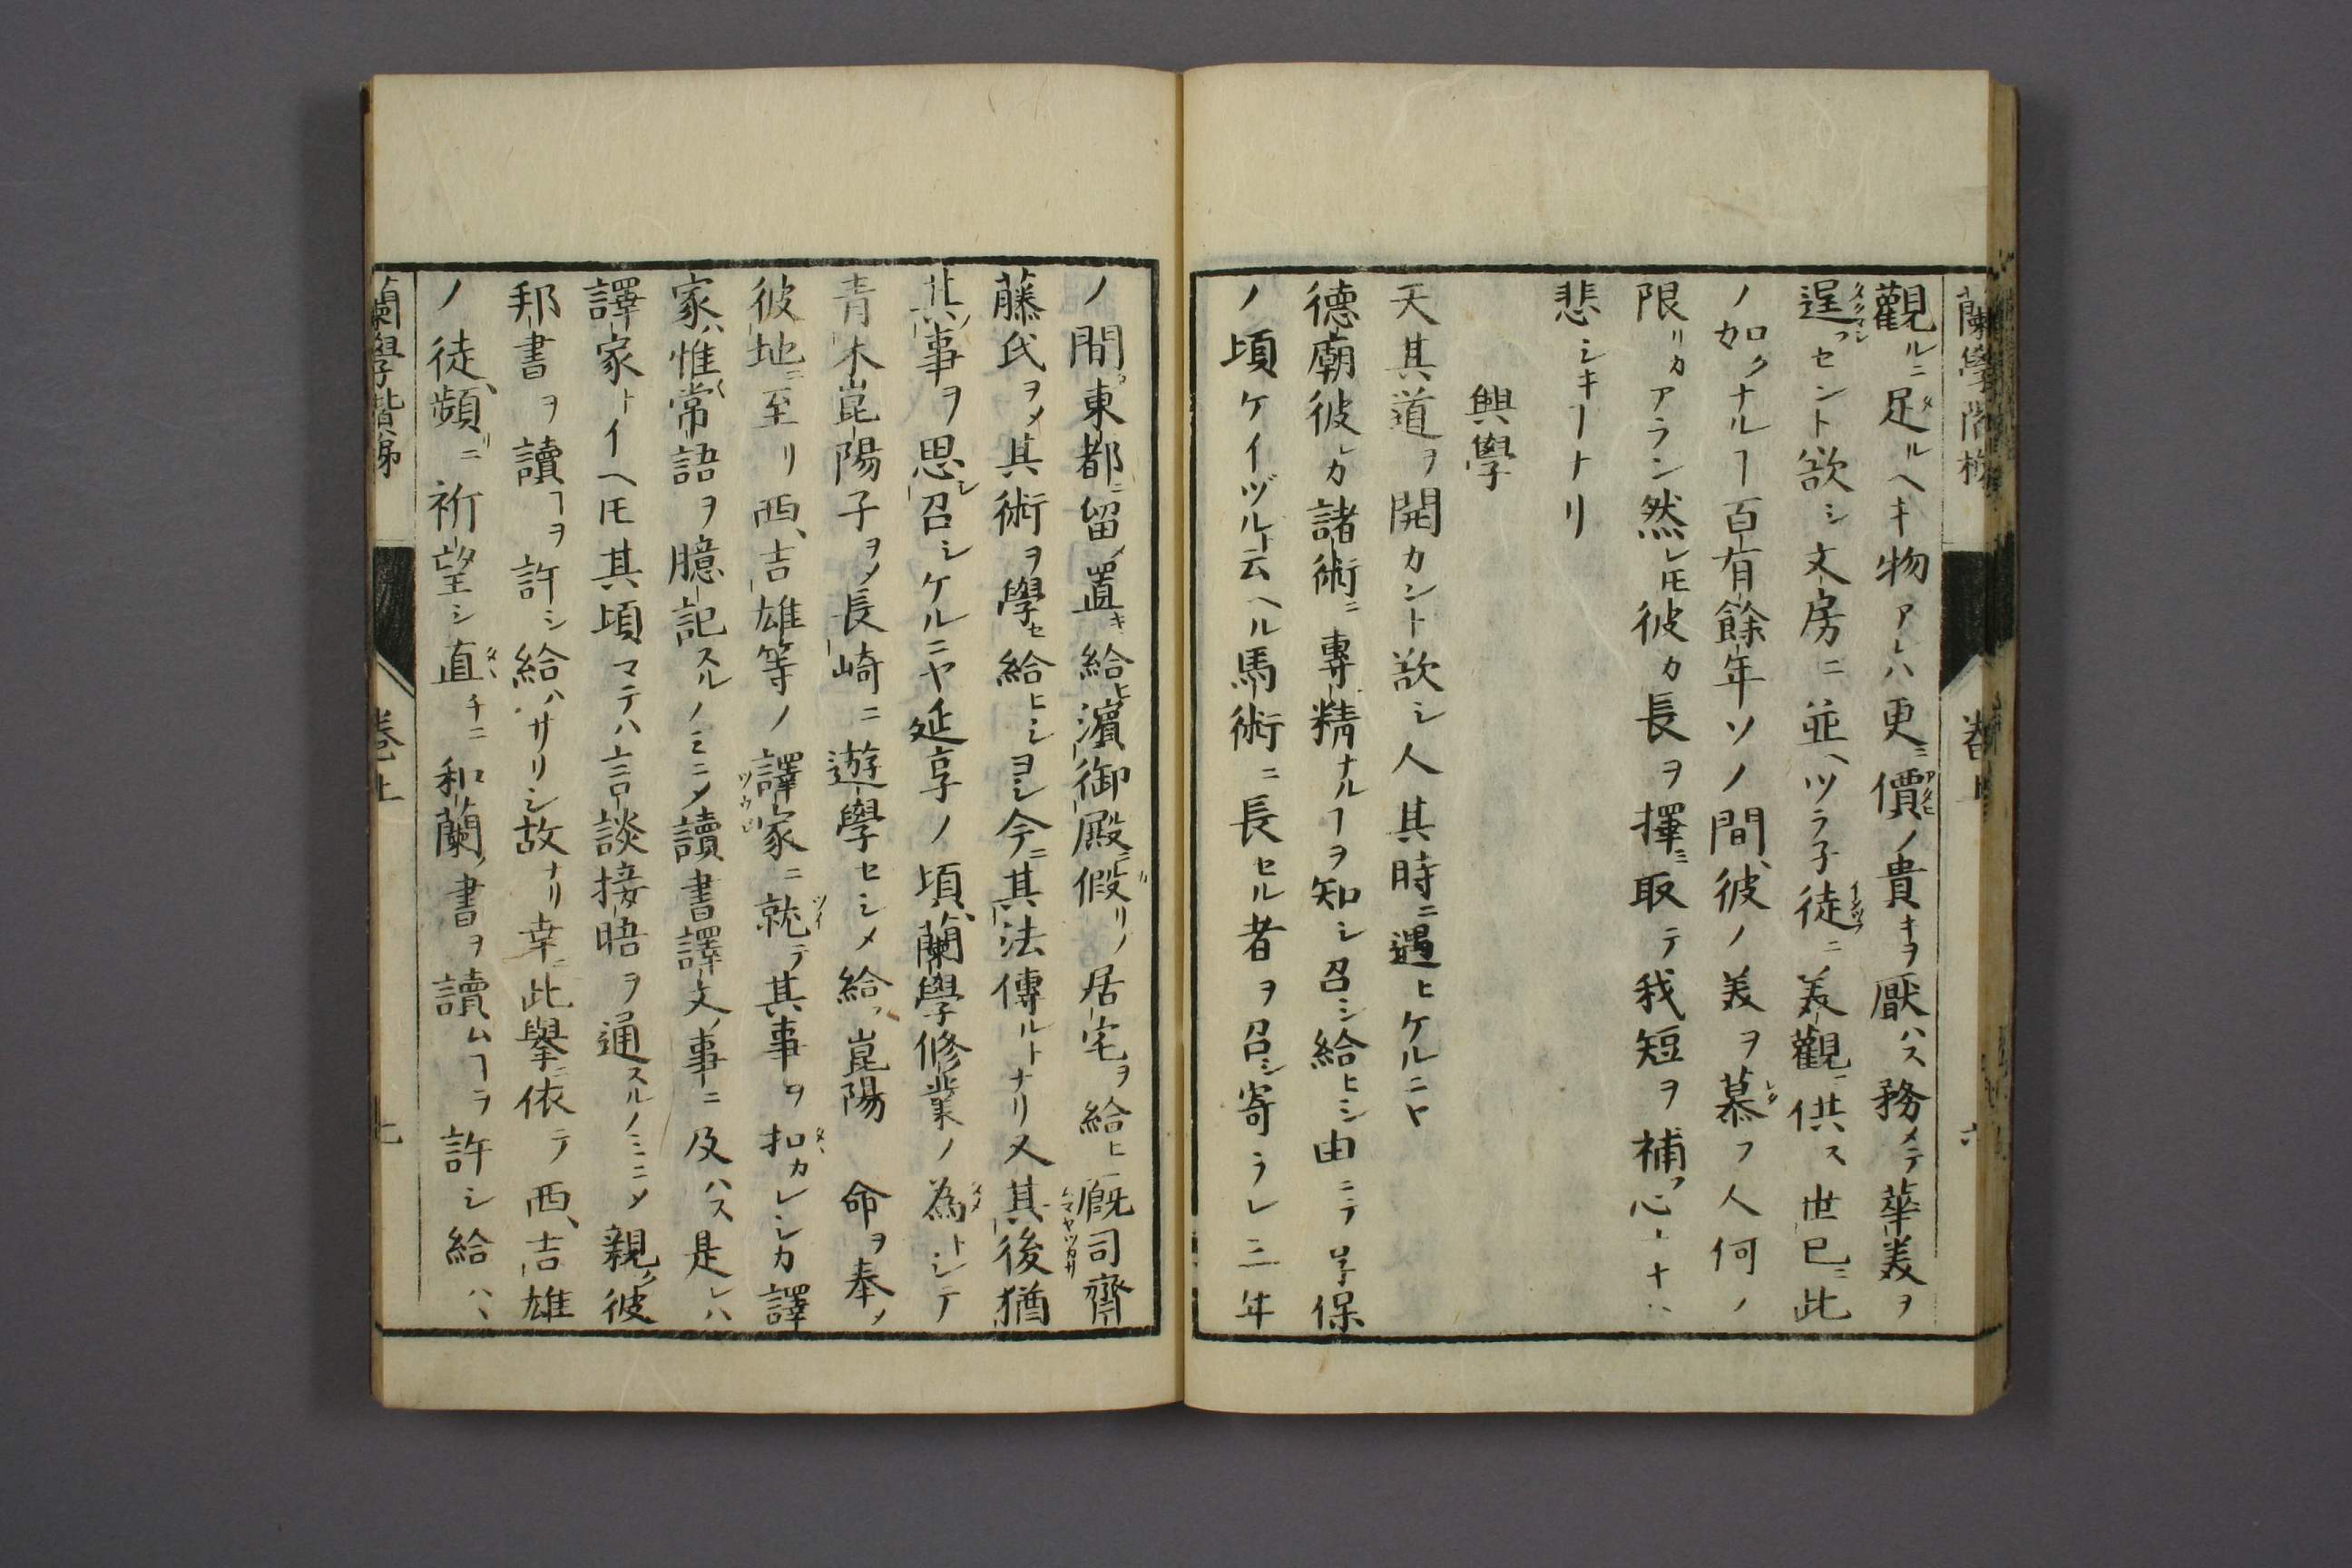 蘭學階梯 卷上 六
觀ルニ足ルヘキ物アレハ更ニ價ノ貴キヲ厭ハス務メテ華美ヲ
逞フセント欲シ文房ニ並ヘツラ子徒ニ美觀ニ供ス世已ニ此
ノ如クナルヿ百有餘年ソノ間彼ノ美ヲ慕フ人何ノ
限リカアラン然レ𪜈彼カ長ヲ擇ミ取テ我短ヲ補フ心ナキハ
悲シキヿナリ
興學
天其道ヲ開カント欲シ人其時ニ遇ヒケルニヤ
德廟彼レカ諸術ニ專精ナルヿヲ知シ召シ給ヒシ由ニテ享保
ノ頃ケイヅルト云ヘル馬術ニ長セル者ヲ召シ寄ラレ三年
ノ間タ東都ニ留メ置キ給ヒ濵御殿ニ假リノ居宅ヲ給ヒ厩司齋
藤氏ヲメ其術ヲ學セ給ヒシヨシ今ニ其法傳ルトナリ又其後猶
其ノ事ヲ思シ召シケルニヤ延享ノ頃蘭學修業ノ為トシテ
青木崑陽子ヲメ長崎ニ遊學セシメ給フ崑陽 命ヲ奉メ
彼地ニ至リ西、吉雄等ノ譯家ニ就テ其事ヲ扣カレシカ譯
家ハ惟常語ヲ臆記スルノミニメ讀書譯文ノ事ニ及ハス是レハ
譯家トイヘ𪜈其頃マテハ言談接晤ヲ通スルノミニメ親ク彼
邦書ヲ讀ヿヲ許シ給ハサリシ故ナリ幸ニ此擧ニ依テ西、吉雄
ノ徒頻リニ祈望シ直チニ和蘭ノ書ヲ讀ムヿヲ許シ給ハヽ
蘭學階梯 卷上 七